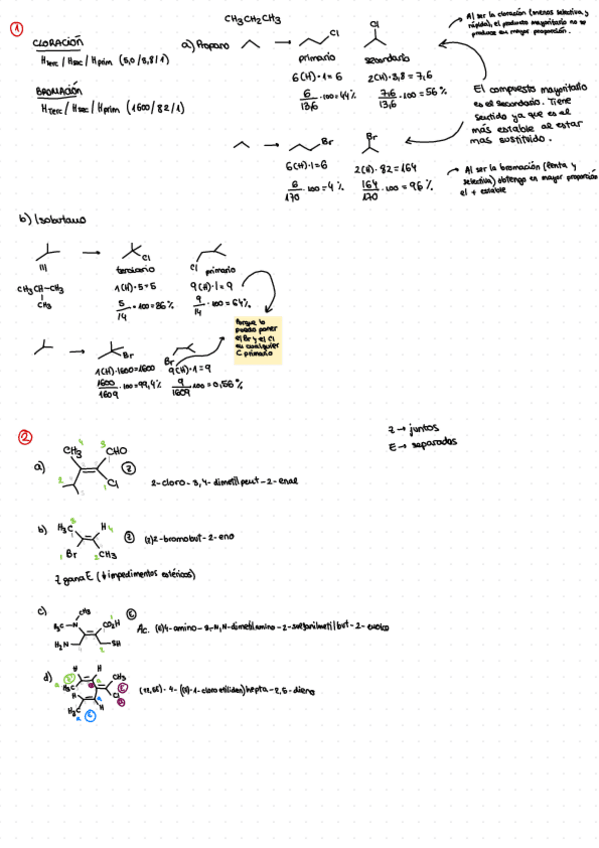 1
CLORACIÓN
Hterc / Hsec / Hprim (5,0/3,8/1)
BROMACIÓN
Hterc / Hsec / Hprim (1600/82/1)
a) Propano
CH3CH2CH3
Cl
primario
6(H)·1=6
6/13,6 ·100=44%
Cl
secundario
2(H)·3,8=7,6
7,6/13,6 ·100=56%
Al ser la cloración (menos selectiva y
rápida), el producto mayoritario no se
produce en mayor proporción.
El compuesto mayoritario
es el secundario. Tiene
sentido ya que es el
más estable al estar
mas sustituido.
Br
6(H)·1=6
6/170 ·100=4%
Br
2(H)·82=164
164/170 ·100=96%
Al ser la bromación (lenta y
selectiva) obtengo en mayor proporción
el + estable
b) Isobutano
CH3CH-CH3
CH3
Cl
terciario
1(H)·5=5
5/14 ·100=36%
Cl
primario
9(H)·1=9
9/14 ·100=64%
Porque lo
puedo poner
el Br y el Cl
en cualquier
C primario
Br
1(H)·1600=1600
1600/1609 ·100=99,4%
Br
9(H)·1=9
9/1609 ·100=0,56%
2
Z → juntos
E → separados
a)
CH3
CHO
Cl
Z
2-cloro-3,4-dimetilpent-2-enal
b)
H3C
H
Br
CH3
Z
(Z)2-bromobut-2-eno
Z gana E (+ impedimentos estéricos)
c)
CH3
H3C
N
CO2H
H2N
SH
E
Ac. (E)4-amino-3-N,N-dimetilamino-2-sulfanilmetilbut-2-enoico
d)
H
H
H3C
CH3
Cl
H
H
H3C